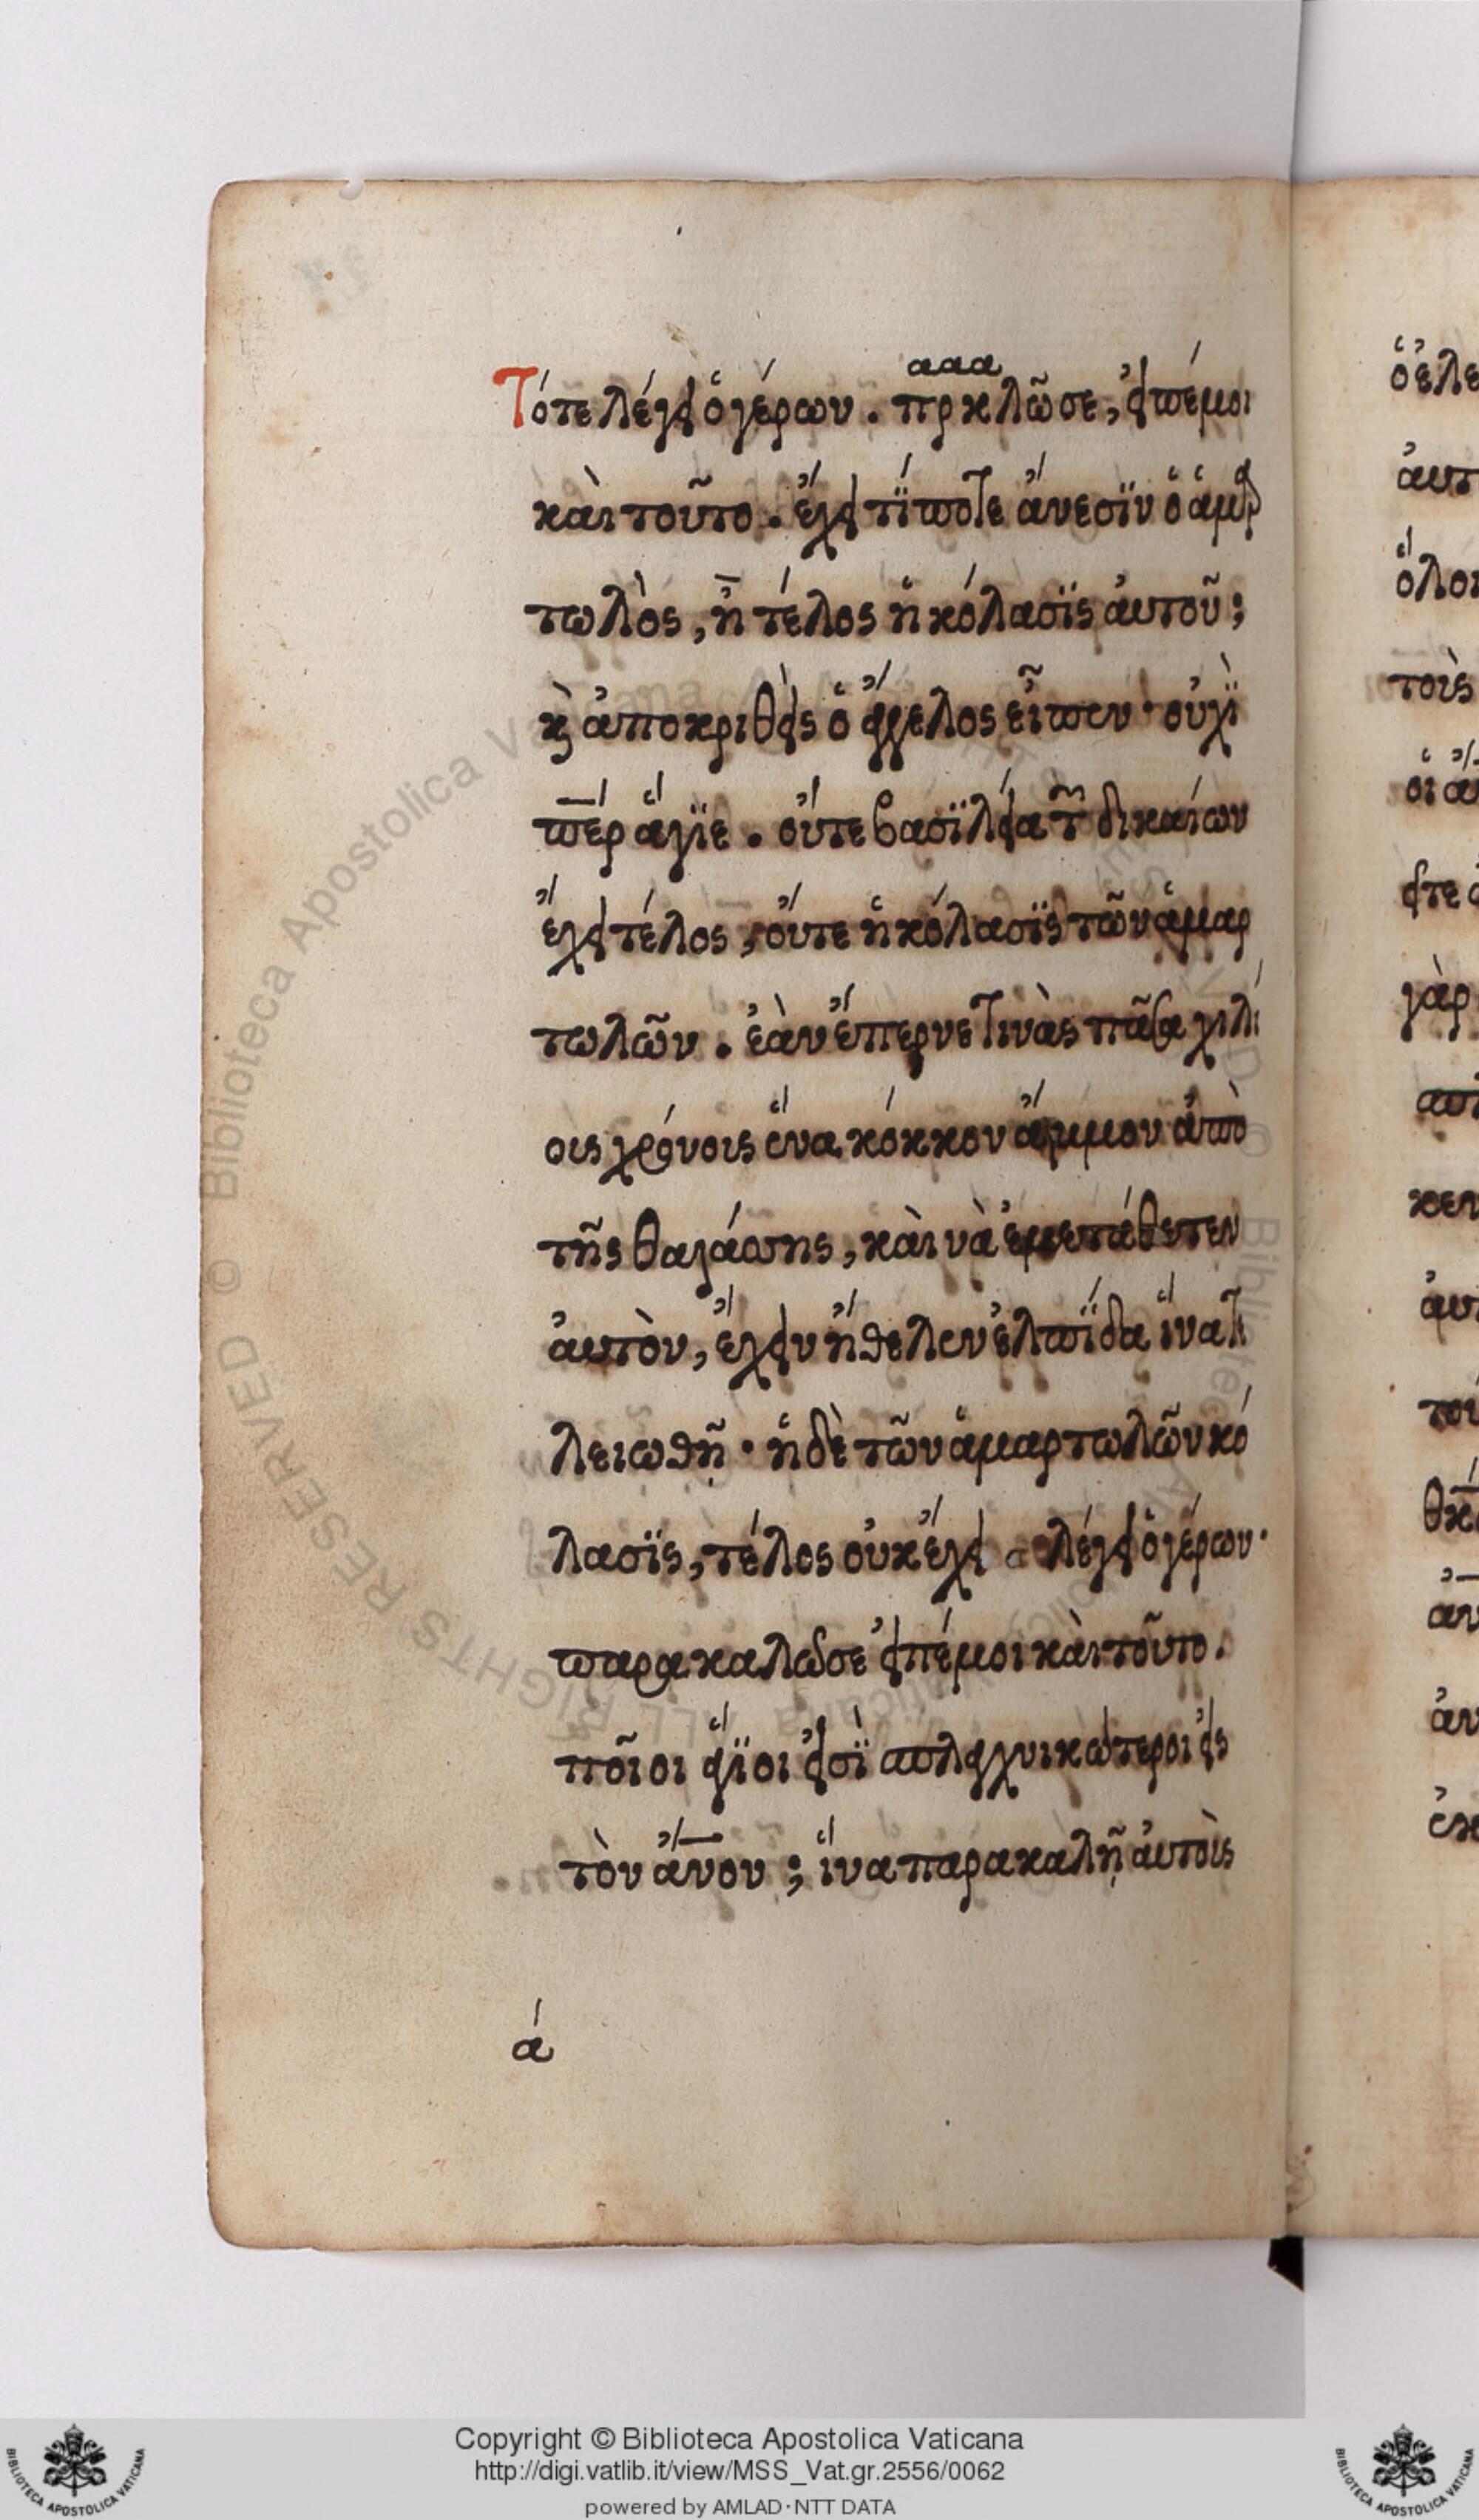 Τότε λέγει ὁ γέρων. πρκλῶ σε, εἰπέ μοι
ααα
καὶ τοῦτο. ἔχει τίποτε ἄνεσϊν ὁ ἁμαρ
τωλὸς, ἢ τέλος ἡ κόλασϊς αὐτοῦ;
κὶ ἀποκριθεὶς ὁ ἄγγελος εἶπεν· οὐχὶ
πέρ ἅγϊε. οὔτε βασϊλεία τῶν δικαίων
ἔχει τέλος, οὔτε ἡ κόλασϊς τῶν ἁμαρ
τωλῶν. ἐὰν ἔπερνε τινὰς πᾶσα χιλί
οις χρόνοις ἕνα κόκκον ἄμμον ἀπὸ
τῆς θαλάσσης, καὶ νὰ
αὐτὸν, ἔχειν ἤθελεν ἐλπΐδα ἵνα τε
λειωθῇ· ἡ δὲ τῶν ἁμαρτωλῶν κό
λασϊς, τέλος οὐκ ἔχει λέγει ὁ γέρων·
παρακαλῶ σε εἰπέ μοι καὶ τοῦτο.
ποῖοι ἅγϊοι εἰσῒ σπλαχνικώτεροι εἰς
τὸν ἄνον; ἵνα παρακαλῇ αὐτοὶς
ά
ALL RIGHTS RESERVED © Biblioteca Apostolica Vaticana
Copyright © Biblioteca Apostolica Vaticana
http://digi.vatlib.it/view/MSS_Vat.gr.2556/0062
powered by AMLAD·NTT DATA
BIBLIOTECA APOSTOLICA VATICANA
BIBLIOTECA APOSTOLICA VATICANA